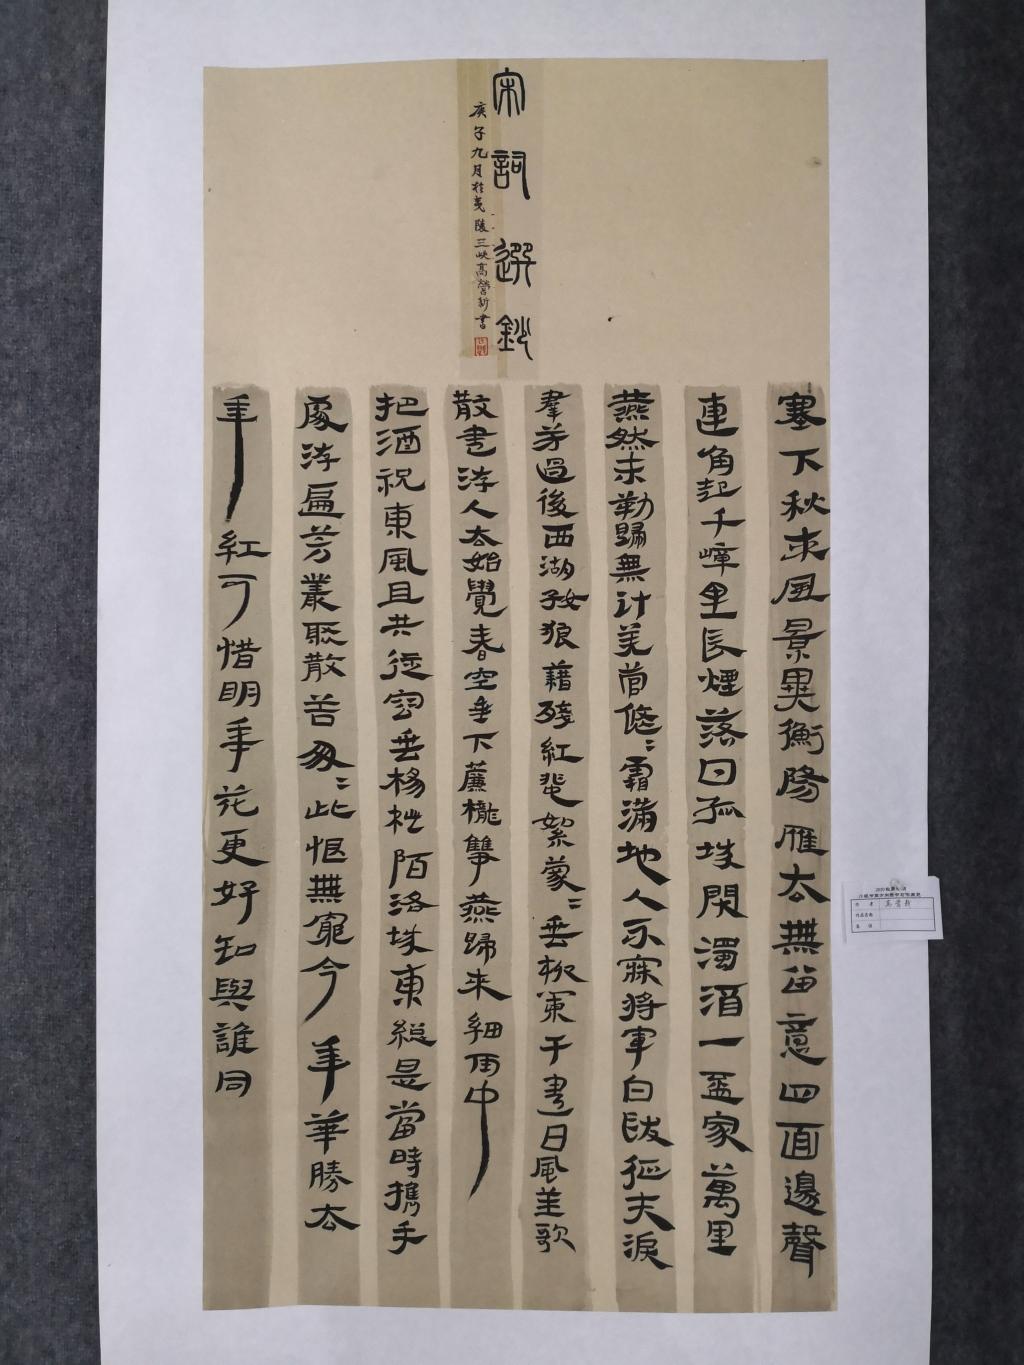 宋詞選鈔
庚子九月於夷陵三峽高營新書
塞下秋来風景異衡陽雁去無留意四面邊聲
連角起千嶂里長煙落日孤城閉濁酒一盃家萬里
燕然未勒歸無计羌管悠〻霜滿地人不寐將軍白髮征夫淚
羣芳過後西湖好狼藉殘紅飛絮蒙〻垂柳闌干盡日風笙歌
散盡游人去始覺春空垂下簾櫳雙燕歸来細雨中
把酒祝東風且共從容垂楊紫陌洛城東總是當時攜手
處游遍芳叢聚散苦匆〻此恨無窮今年華勝去
年紅可惜明年花更好知與誰同
作者 高營新